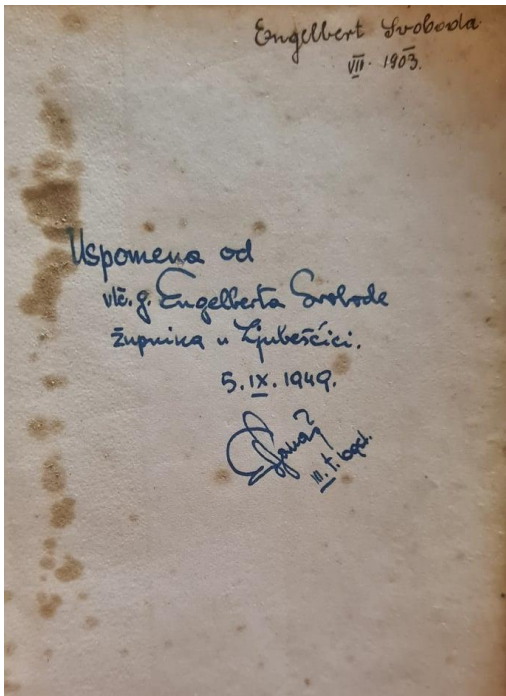 Engelbert Svoboda
VII. 1903.
Uspomena od
vlč. g. Engelberta Svobode
župnika u Ljubešćici.
5. IX. 1949.